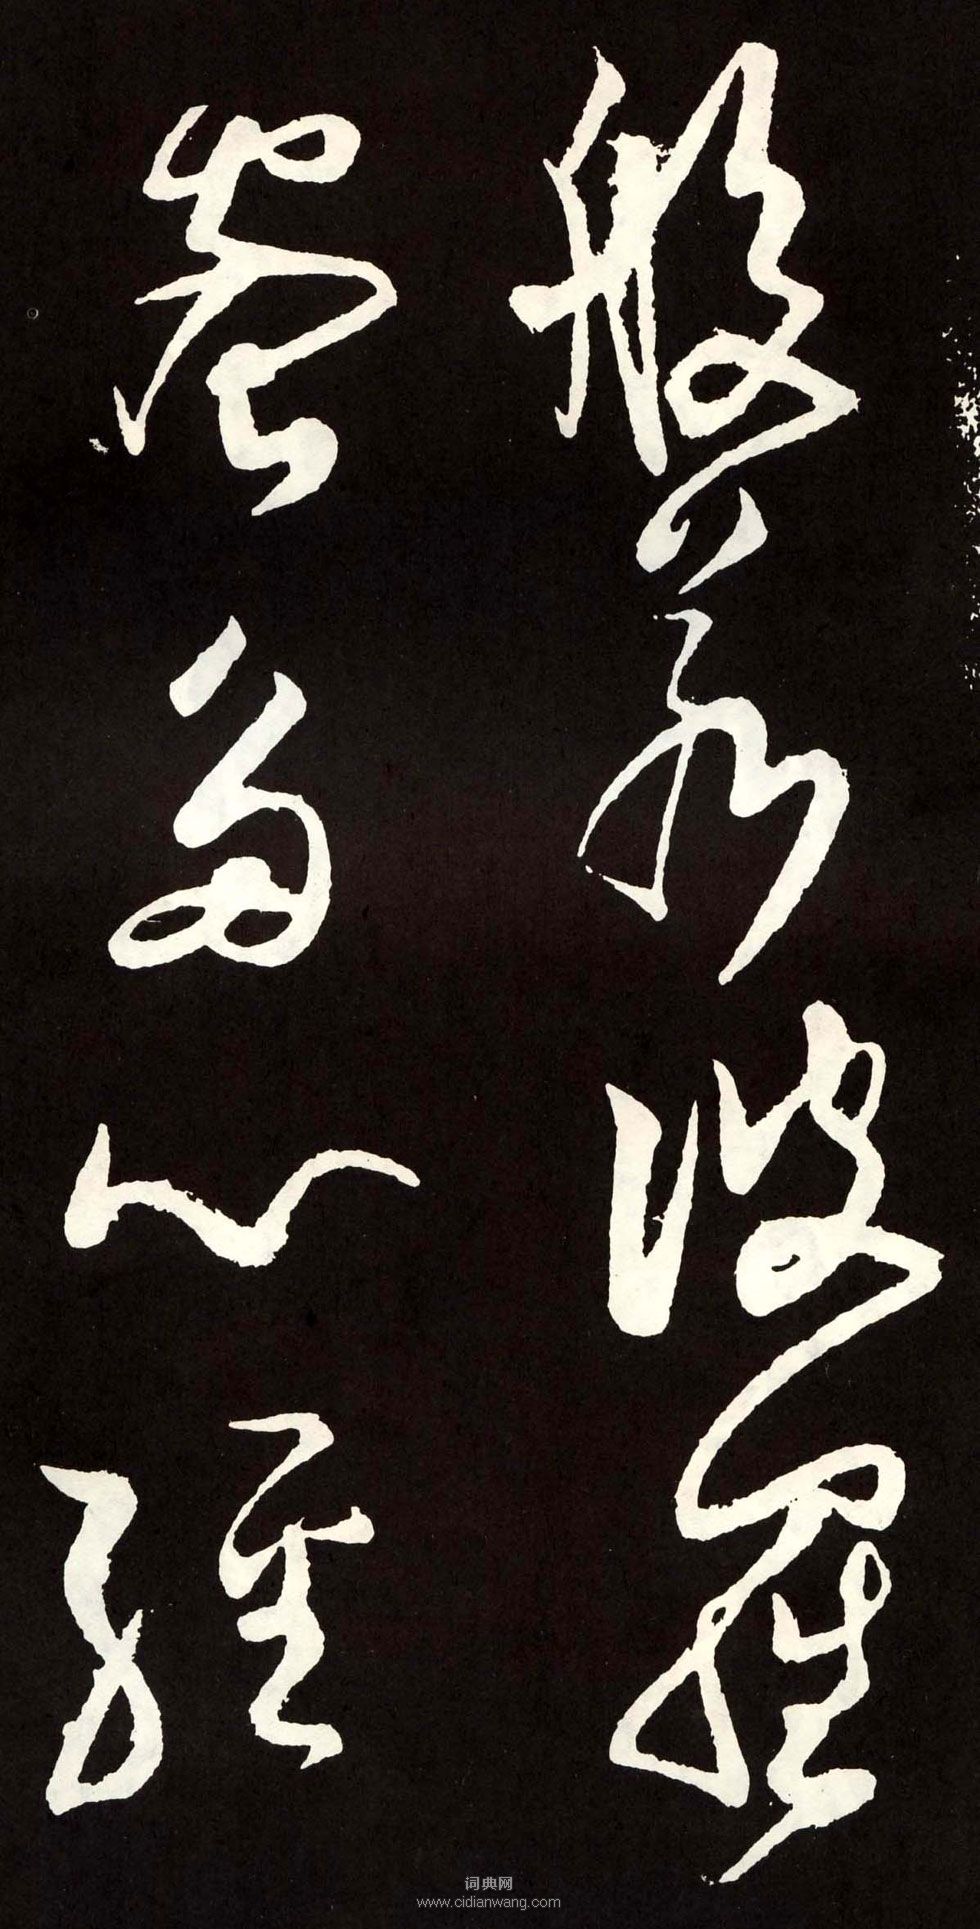 般若波羅
蜜多心經
词典网
www.cidianwang.com